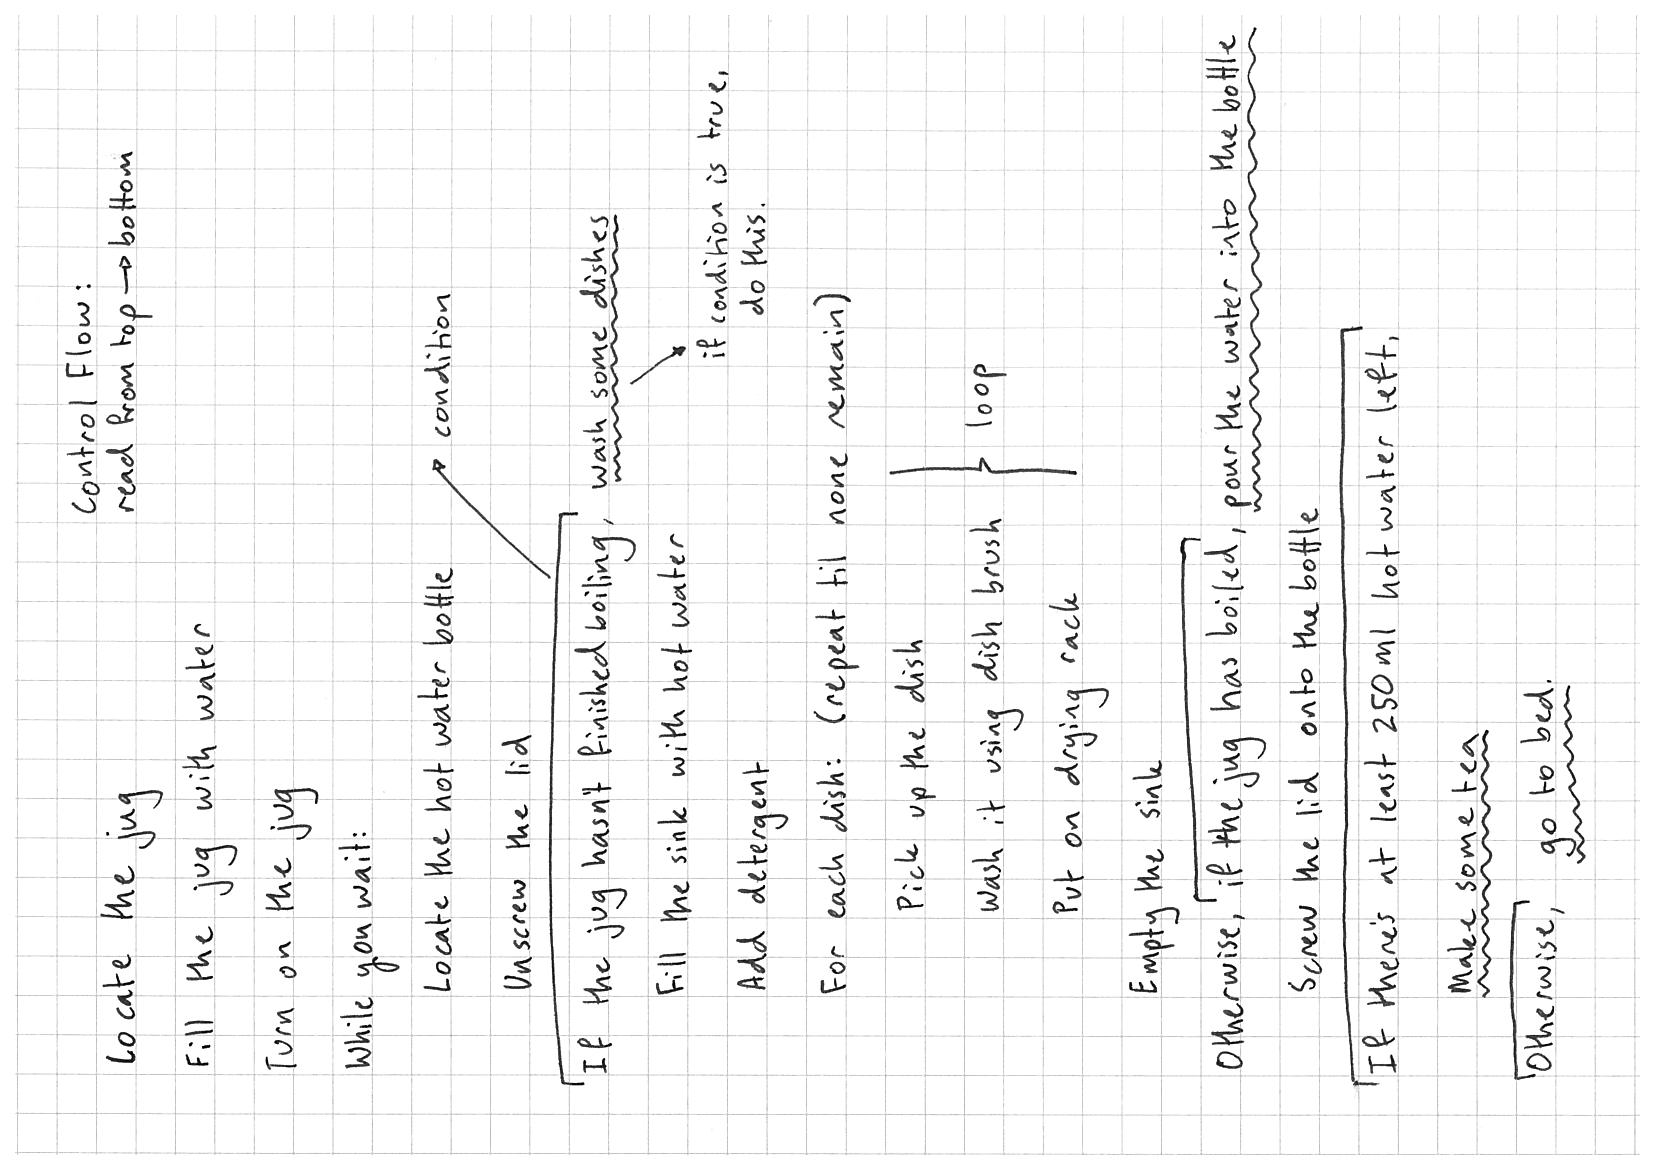 Control Flow:
read from top → bottom
Locate the jug
Fill the jug with water
Turn on the jug
While you wait:
Locate the hot water bottle
condition
Unscrew the lid
If the jug hasn't finished boiling, wash some dishes
Fill the sink with hot water
if condition is true,
do this.
Add detergent
For each dish: (repeat til none remain)
Pick up the dish
Wash it using dish brush
loop
Put on drying rack
Empty the sink
Otherwise, if the jug has boiled, pour the water into the bottle
Screw the lid onto the bottle
If there's at least 250ml hot water left,
Make some tea
Otherwise, go to bed.